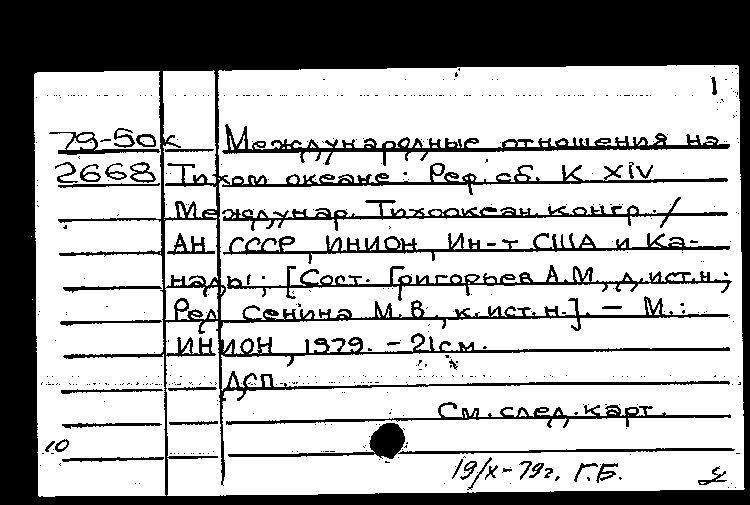 1
79-50к Международные отношения на
2668 Тихом океане: Реф. сб. К XIV
Междунар. Тихоокеан. конгр. /
АН СССР, ИНИОН, Ин-т США и Ка-
нады; [Сост. Григорьев А.М., д.ист.н.;
Ред. Сенина М.В., к.ист.н.]. – М.:
ИНИОН, 1979. – 21см.
ДСП.
См. след. карт.
10
19/X-79г. Г.Б.